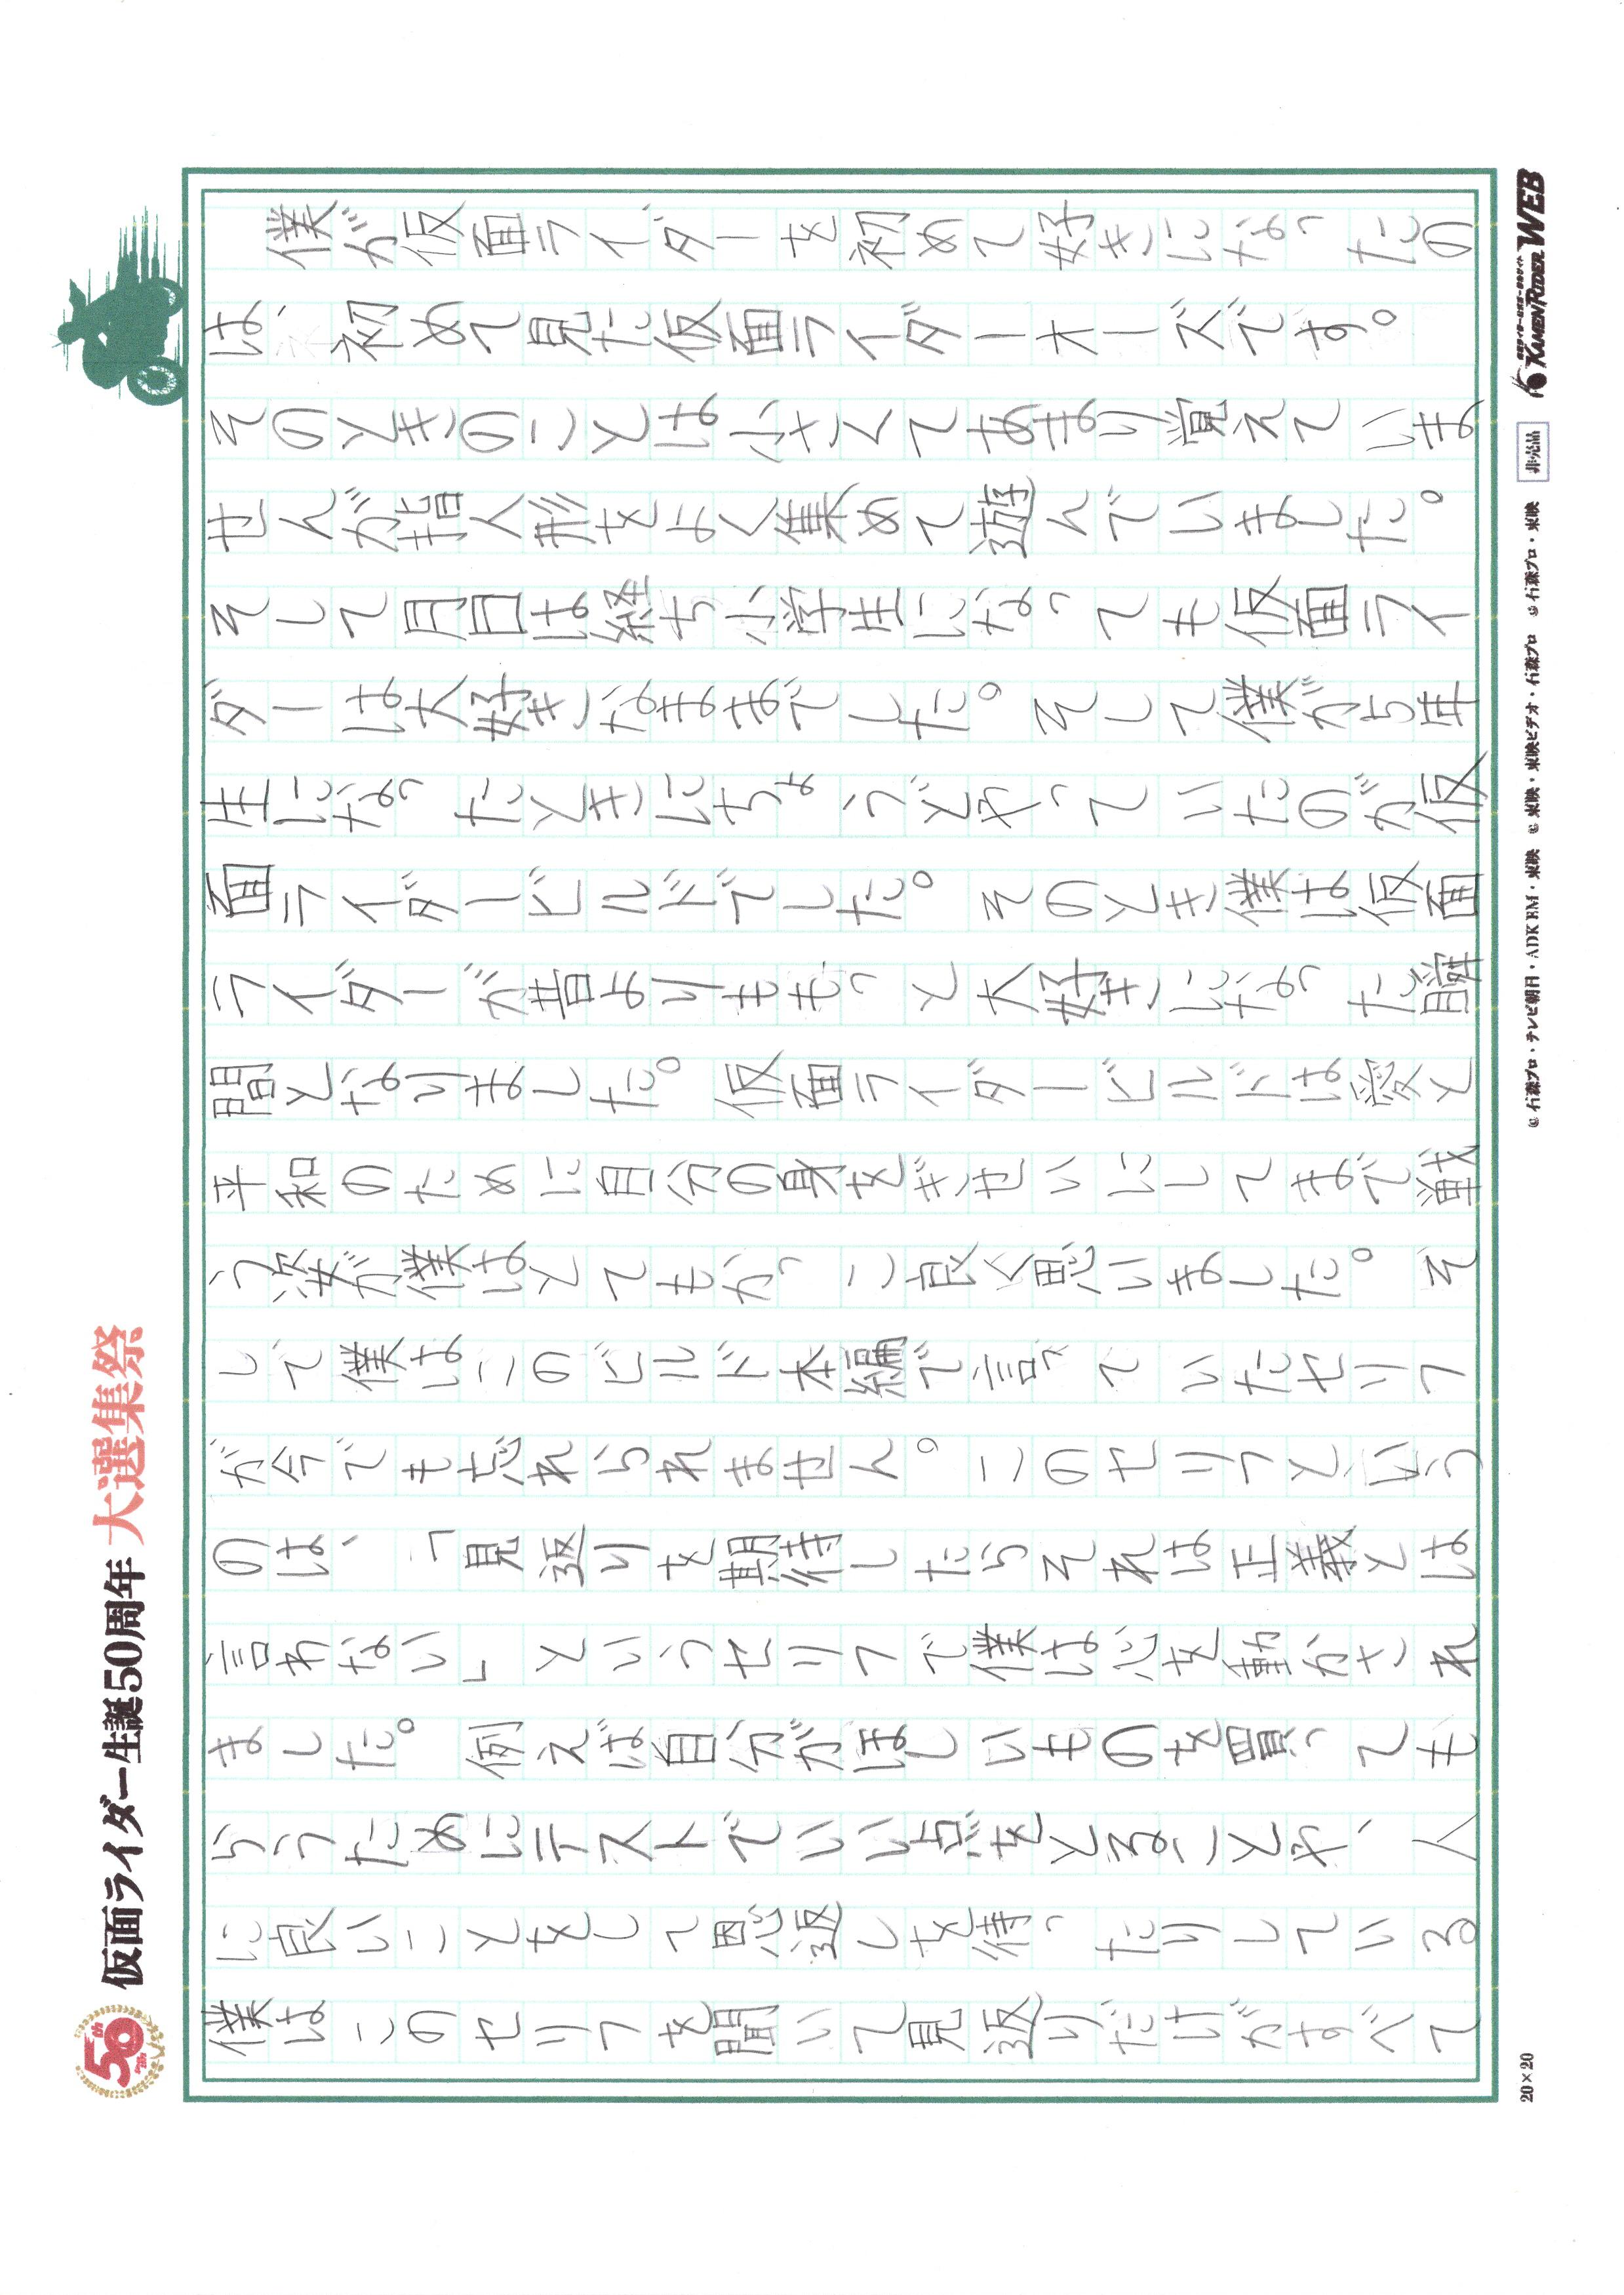 仮面ライダー生誕50周年 大選集祭
50th
僕が仮面ライダーを初めて好きになったの
は、初めて見た仮面ライダーオーズです。
そのときのことは小さくてあまり覚えていま
せんが指人形をよく集めて遊んでいました。
そして月日は経ち小学生になっても仮面ライ
ダーは大好きなままでした。そして僕が5年
生になったときにちょうどやっていたのが仮
面ライダービルドでした。そのとき僕は仮面
ライダーが昔よりももっと大好きになった瞬
間となりました。仮面ライダービルドは愛と
平和のために自分の身をぎせいにしてまで戦
う姿が僕はとてもかっこ良く思いました。そ
して僕はこのビルド本編で言っていたセリフ
が今でも忘れられません。このセリフという
のは、「見返りを期待したらそれは正義とは
言わない」というセリフで僕は心を動かされ
ました。例えば自分がほしいものを買っても
らうためにテストでいい点をとることや、人
に良いことをして恩返しを待ったりしている
僕はこのセリフを聞いて見返りだけがすべて
20×20
©石森プロ・テレビ朝日・ADK EM・東映 ©東映・東映ビデオ・石森プロ ©石森プロ・東映
非売品
KAMEN RIDER WEB